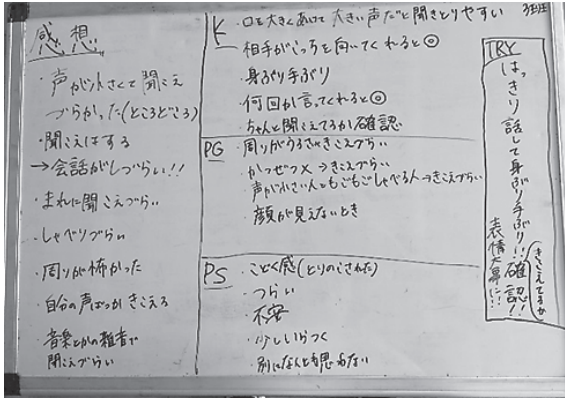 感想
・声が小さくて聞こえ
づらかった(ところどころ)
・聞こえはする
→会話がしづらい!!
・まれに聞こえづらい
・しゃべりづらい
・周りが怖かった
・自分の声ばっかきこえる
・音楽とかの雑音で
聞こえづらい
K
・口を大きくあけて大きい声だと聞きとりやすい
3班
・相手がこっちを向いてくれると◎
・身ぶり手ぶり
・何回か言ってくれると◎
・ちゃんと聞こえてるか確認
PG
・周りがうるさいきこえづらい
・かつぜつ×→きこえづらい
声が小さい人、もごもごしゃべる人→きこえづらい
・顔が見えないとき
PS
・こどく感(とりのこされた)
・つらい
・不安
・少しいらつく
・別になんとも思わない
TRY
はっきり話して身ぶり手ぶり!!確認!
(きこえてるか)
表情大事に!!